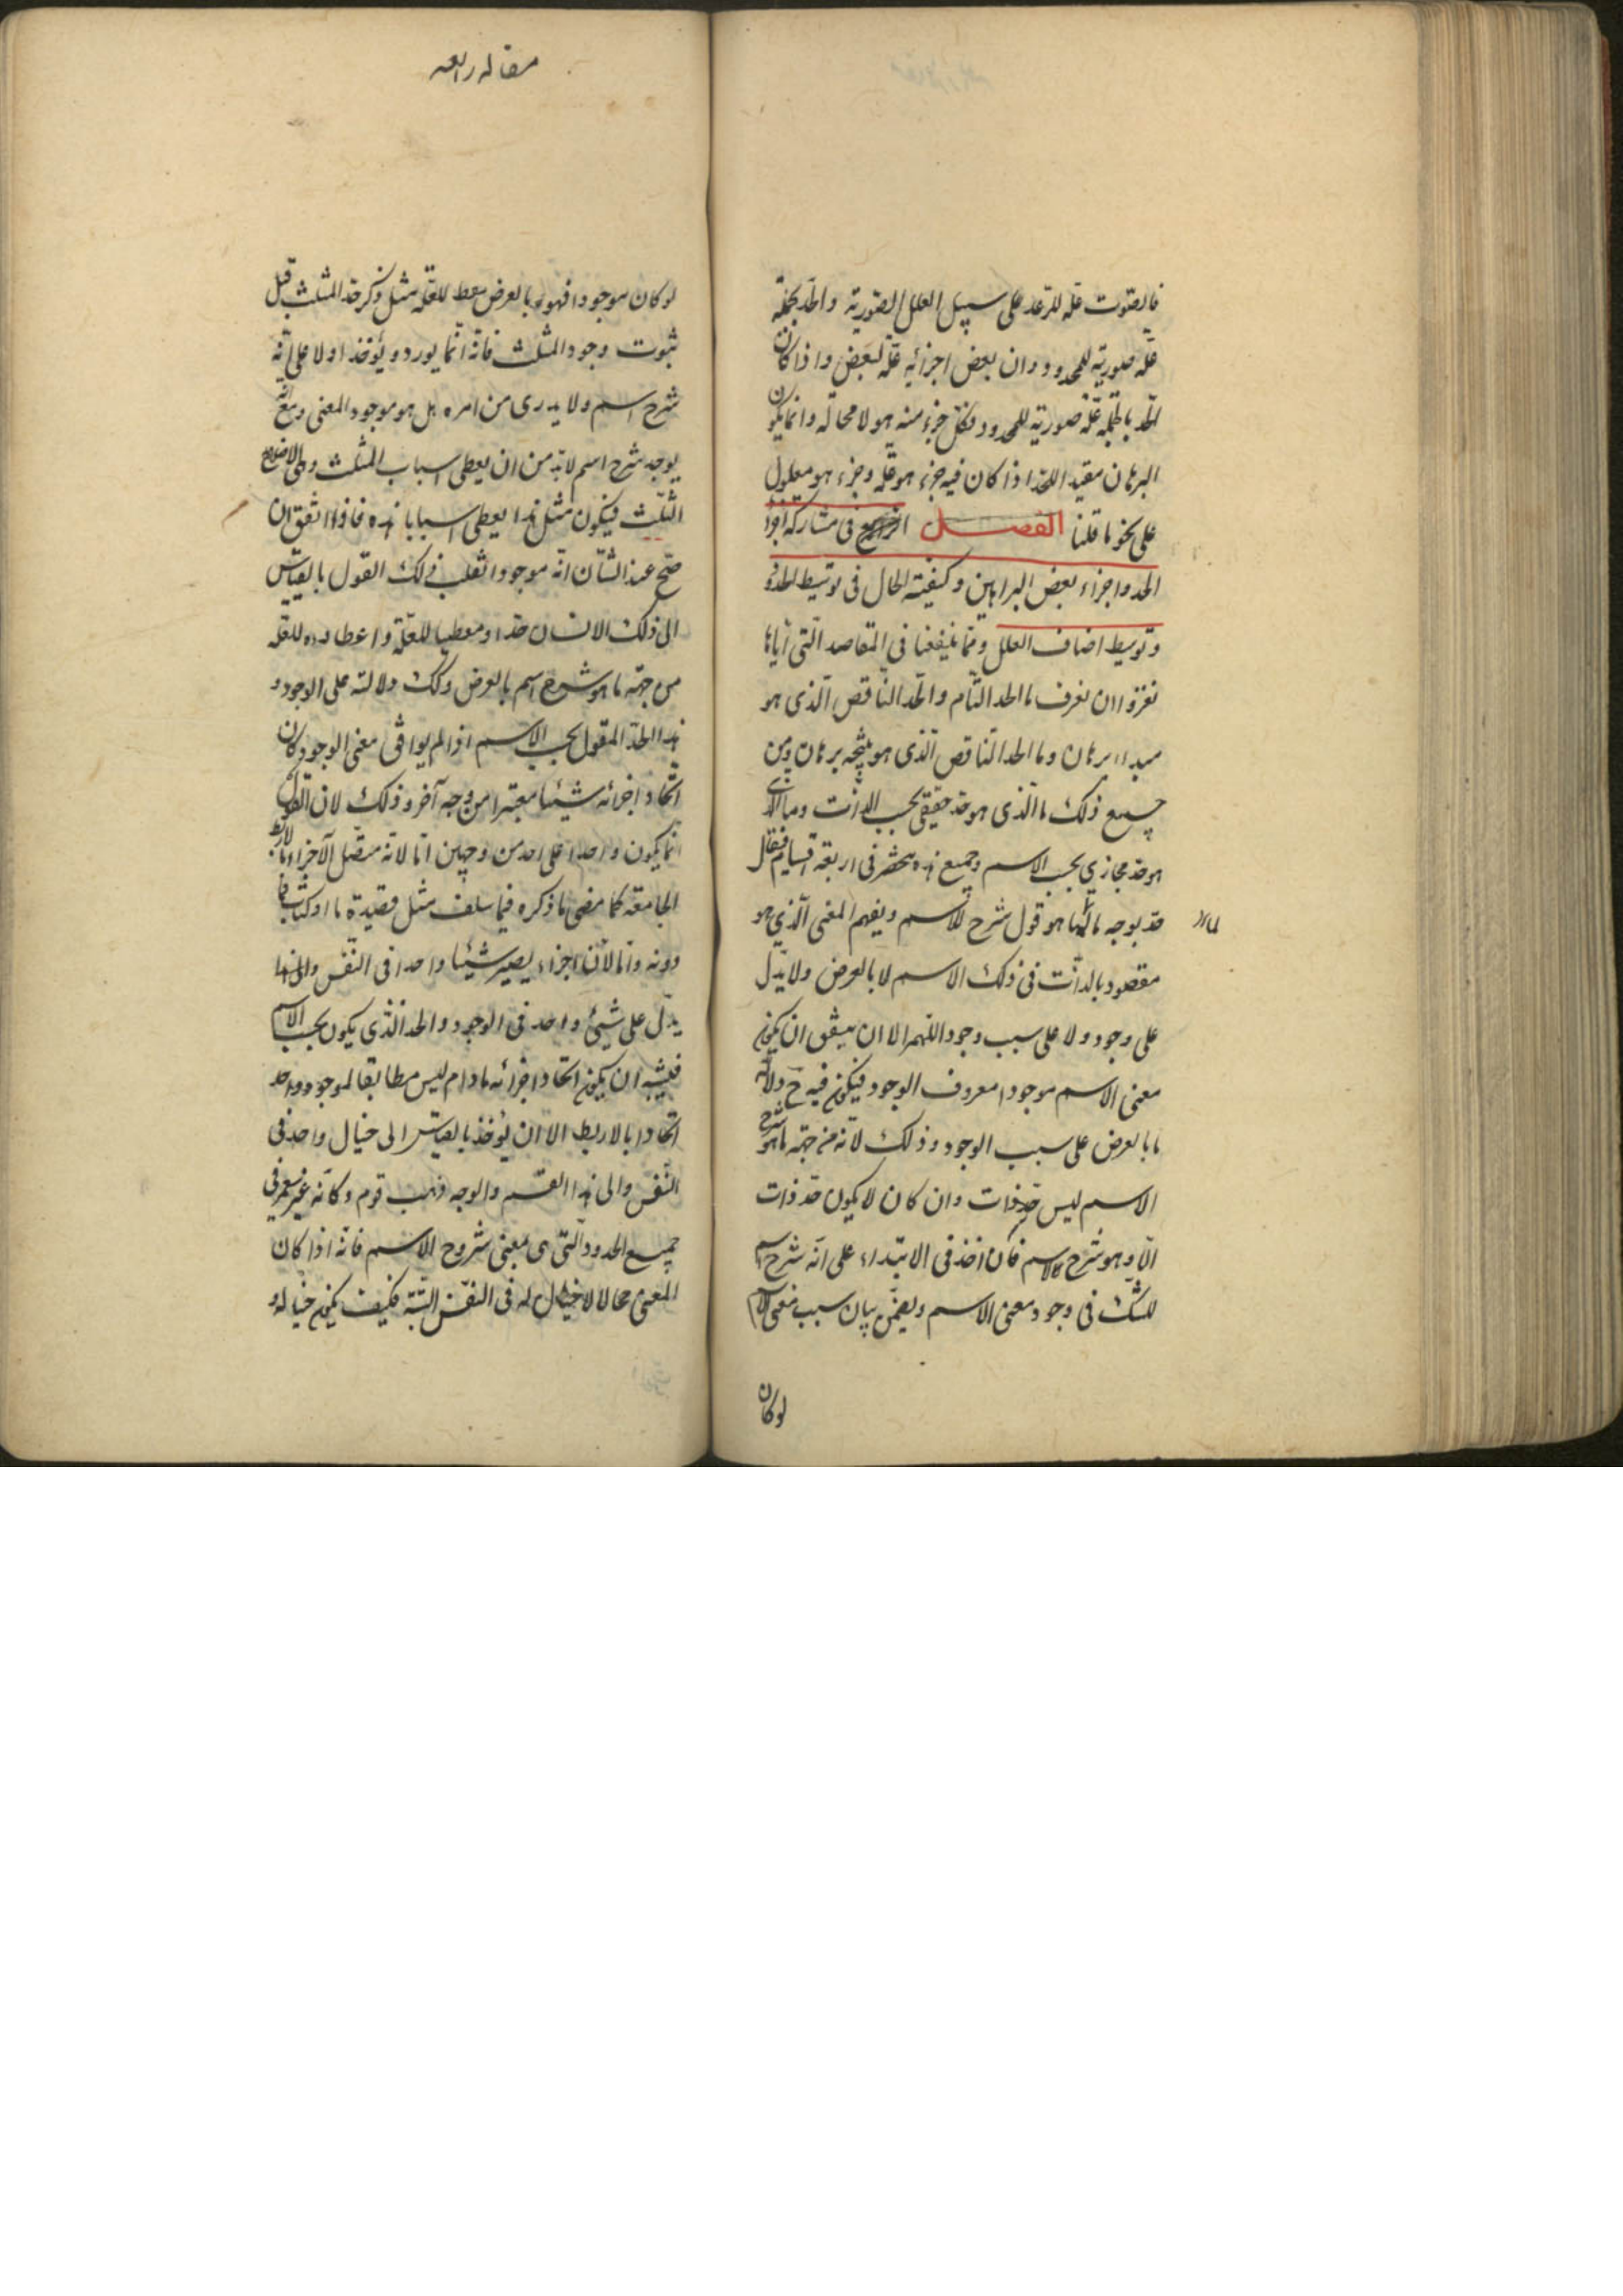 فالصوت علة للرعد على سبيل العلل الصورية والحد بجملته
علة صورية للمحدود وان بعض اجزائه علة لبعض واذا كان
الحد بالجملة علة صورية للمحدود فكل جزء منه هو لا محالة وانما يكون
البرهان مفيد اللحد اذا كان فيه جزء هو علة وجزء هو معلول
على نحو ما قلنا الفصل الرابع في مشاركة اجزاء
الحد واجزاء بعض البراهين وكيفية الحال في توسيط الحد و
وتوسيط اصناف العلل ومما ينفعنا في المقاصد التي اياها
نغزو ان نعرف ما الحد التام والحد الناقص الذى هو
مبدا برهان وما الحد الناقص الذى هو نتيجة برهان ومن
جميع ذلك ما الذى هو حد حقيقى بحسب الذات وما الذى
هو حد مجازي بحسب الاسم وجميع هذه ينحصر في اربعة اقسام فيقال
حد بوجه ما لما هو قول شرح للاسم ويفهم المعنى الذي هو
مقصود بالذات في ذلك الاسم لا بالعرض ولا يدل
على وجود ولا على سبب وجود اللهم الا ان يتفق ان يكون
معنى الاسم موجودا معروف الوجود فيكون فيه ح دلالة
ما بالعرض على سبب الوجود وذلك لانه من جهة ما هو شرح
الاسم ليس حد ذات وان كان لا يكون حد ذات
الا وهو شرح للاسم فان اخذ في الابتداء على انه شرح اسم
للشك في وجود معنى الاسم ويضمن بيان سبب معنى الاسم
لوكان
مقاله رابعه
لو كان موجودا فهو بالعرض معط للعلة مثل ذكر حد المثلث قبل
ثبوت وجود المثلث فانه انما يورد ويؤخذ اولا على انه
شرح اسم ولا يدرى من امره بل هو موجود المعنى ومع انه
يوجد شرح اسم لابد من ان يعطى اسباب المثلث وهى الاضلاع
الثلث فيكون مثل هذا يعطى اسبابا هذه فاذا اتفق ان
صح عند الشان انه موجود انقلب ذلك القول بالقياس
الى ذلك الانسان حدا ومعطيا للعلة واعطاءه للعلة
من جهة ما هو شرح اسم بالعرض وكك دلالته على الوجود و
هذا الحد المقول بحسب الاسم اذا لم يوافي معنى الوجود كان
اتحاد اجزائه شيئا معتبرا من وجه آخر وذلك لان القول
انما يكون واحدا على احد من وجهين اما لانه متصل الاجزاء
الجامعة كما مضى ما ذكره فيما سلف مثل قصيدة ما او كتاب
دونه واما لان اجزاء يصير شيئا واحدا في النفس
يدل على شيئ واحد في الوجود والحد الذى يكون بحسب الاسم
فيشبه ان يكون اتحاد اجزائه ما دام ليس مطابقا لموجود واحد
اتحادا بالاربط الا ان يؤخذ بالقياس الى خيال واحد في
النفس والى هذا القسم والوجه ذهب قوم وكانه غير
جميع الحدود التى هى بمعنى شروح للاسم فانه اذا كان
المعنى محالا لا خيال له في النفس البتة فكيف يكون خياله و